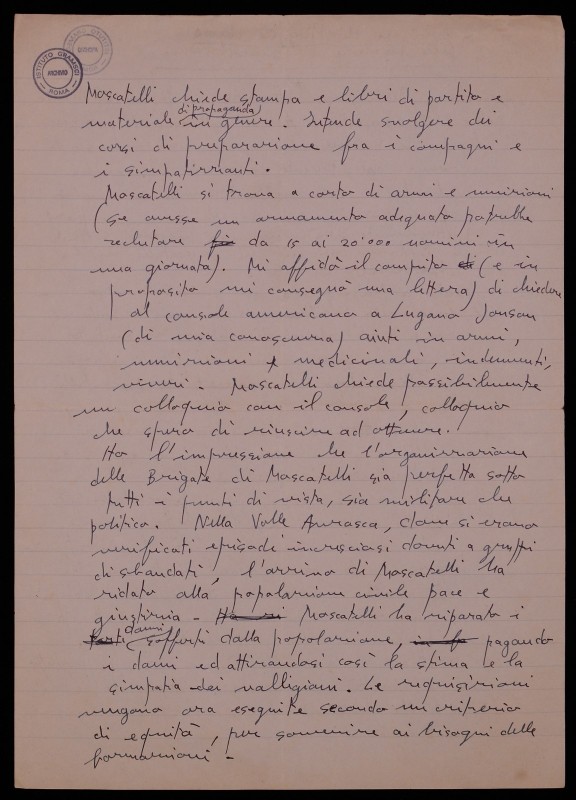 ISTITUTO GRAMSCI
ARCHIVIO
ROMA
Moscatelli chiede stampa e libri di partito e
di propaganda
materiale in genere. Intende svolgere dei
corsi di preparazione fra i compagni e
i simpatizzanti.
Moscatelli si trova a corto di armi e munizioni
(se avesse un armamento adeguato potrebbe
reclutare da 15 ai 20.000 uomini in
una giornata). Mi affidò il compito di (e in
proposito mi consegnò una lettera) di chiedere
al console americano a Lugano Jonson
(di mia conoscenza) aiuti in armi,
munizioni e medicinali, indumenti,
viveri. Moscatelli chiede possibilmente
un colloquio con il console, colloquio
che spera di riuscire ad ottenere.
Ho l'impressione che l'organizzazione
delle Brigate di Moscatelli sia perfetta sotto
tutti i punti di vista, sia militare che
politico. Nella Valle Anzasca, dove si erano
verificati episodi incresciosi dovuti a gruppi
di sbandati, l'arrivo di Moscatelli ha
ridato alla popolazione civile pace e
giustizia - Moscatelli ha riparato i
danni
sofferti dalla popolazione, pagando
i danni ed attirandosi così la stima e la
simpatia dei valligiani. Le requisizioni
vengono ora eseguite secondo un criterio
di equità, per sovvenire ai bisogni delle
formazioni -